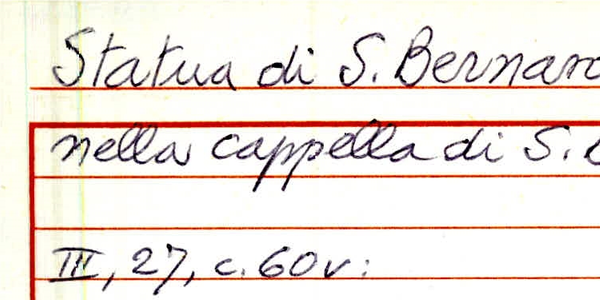 Statua di S. Bernar
nella cappella di S.
III, 27, c. 60v: